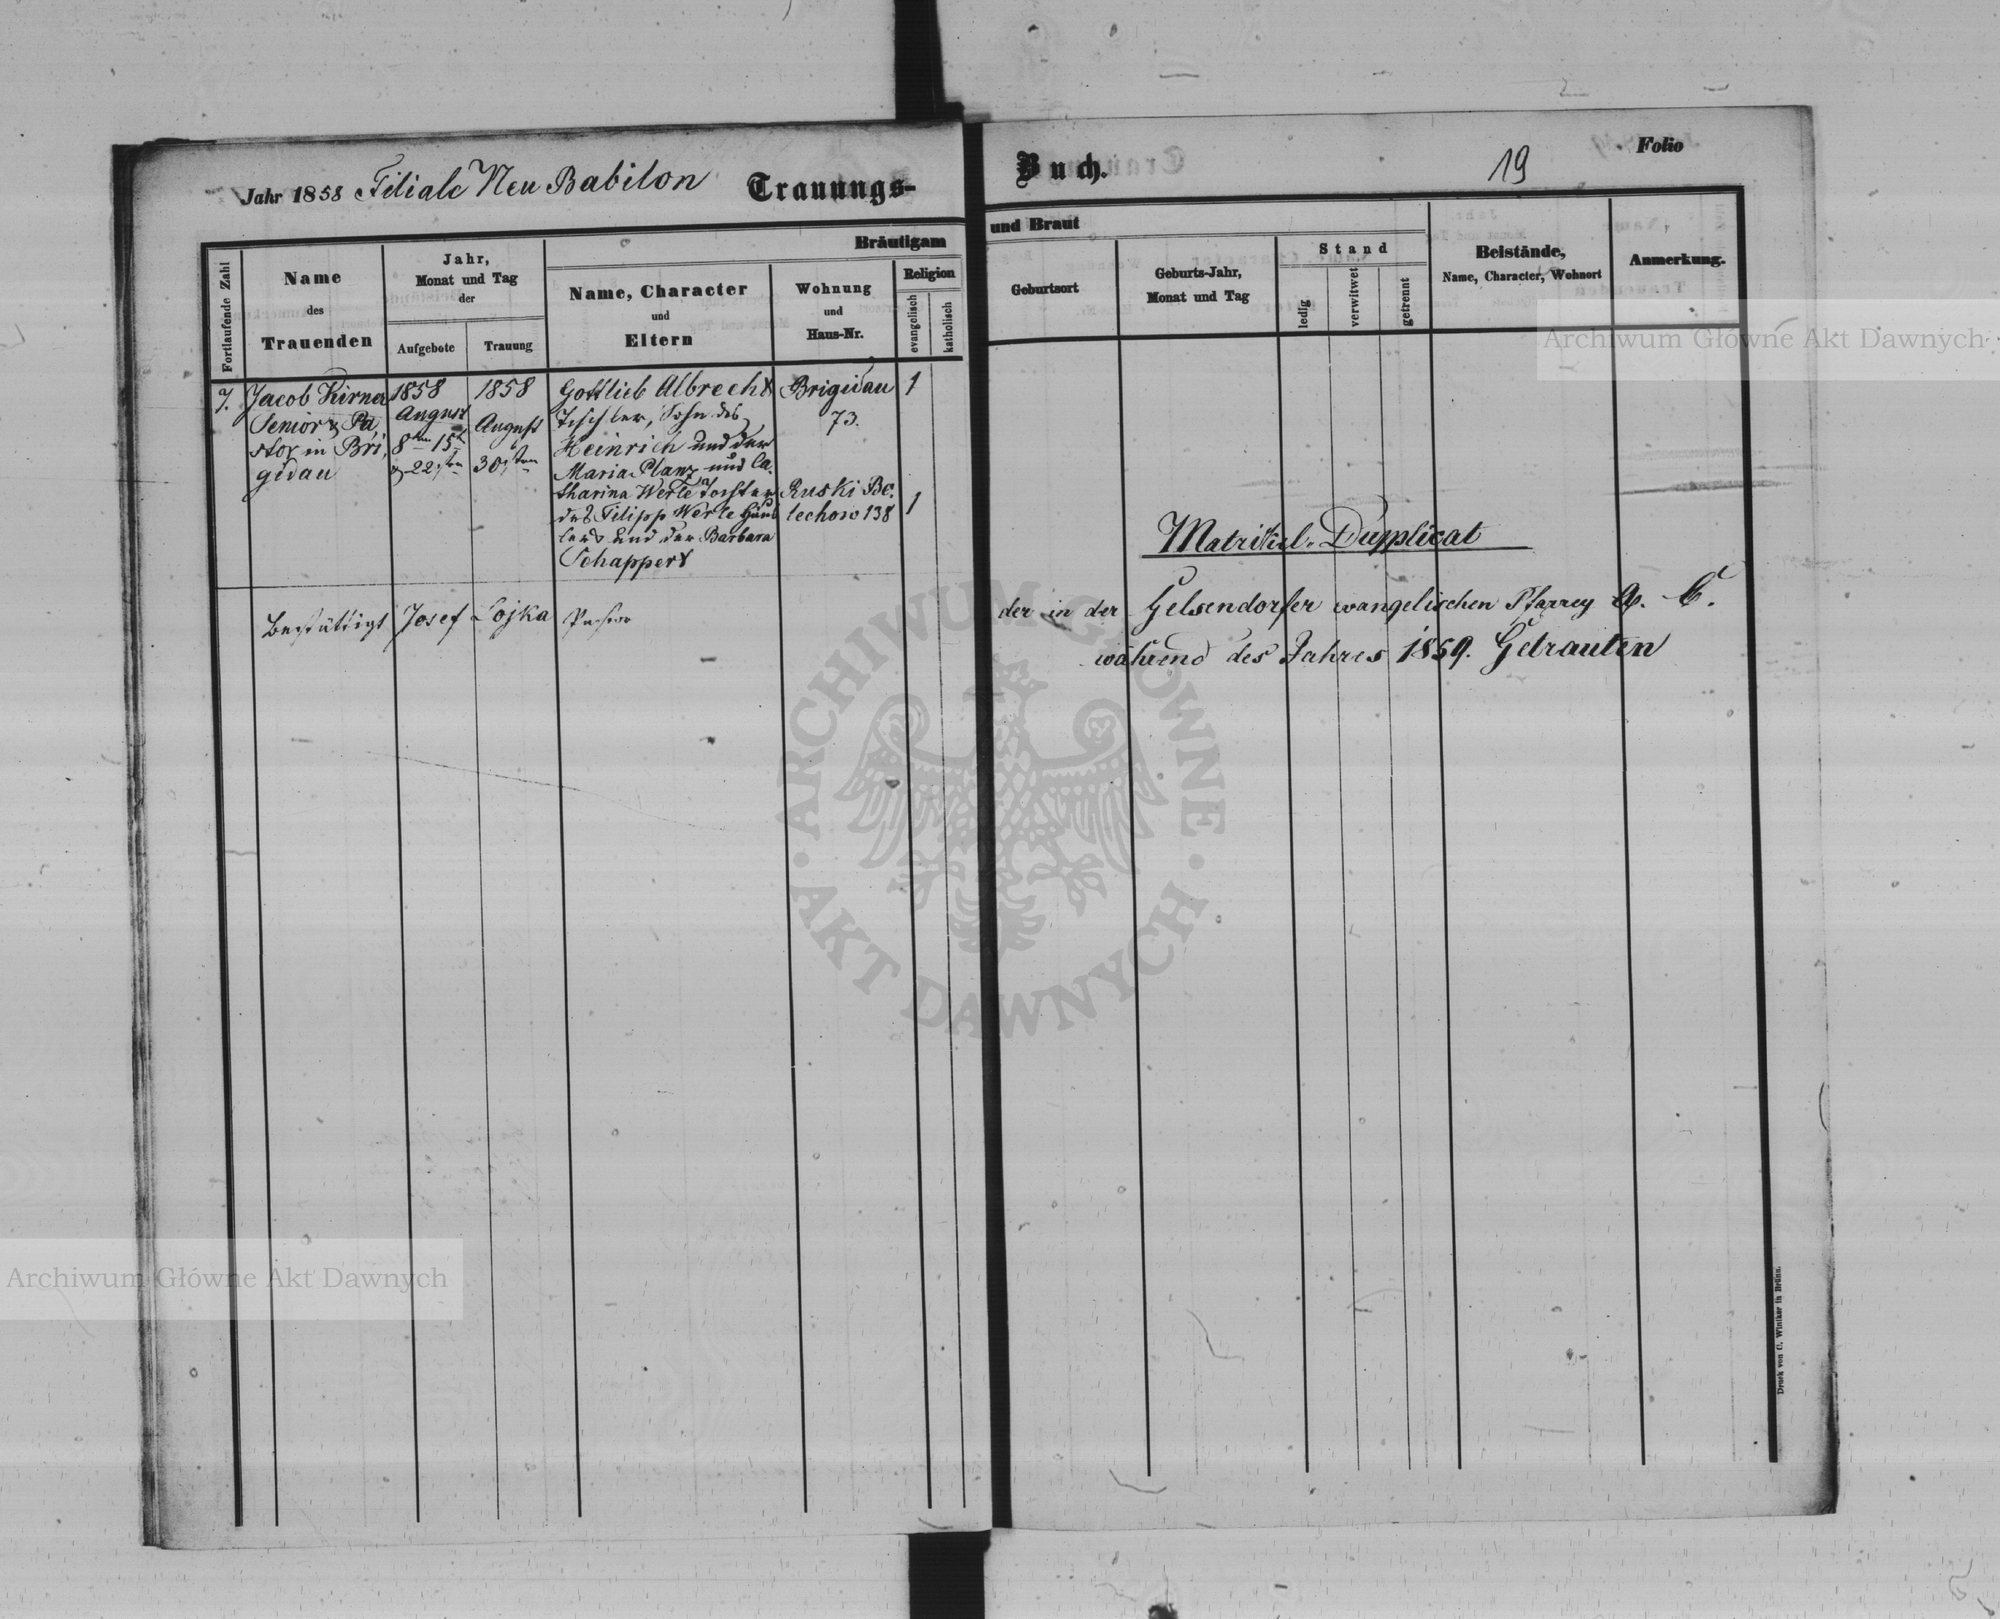 Jahr 1858 Filiale Neu Babilon Trauungs-
Bräutigam
Fortlaufende Zahl
Name
des
Trauenden
Jahr,
Monat und Tag
der
Aufgebote
Trauung
Name, Character
und
Eltern
Wohnung
und
Haus-Nr.
Religion
evangelisch
katholisch
7.
Jacob Kirner
Senior & Pa,
stor in Bri,
gidau
1858
August
8ten 15t
& 22sten
1858
August
30sten
Gottlieb Albrecht
Tischler, Sohn des
Heinrich und der
Maria Planz und Ca.
tharina Werle Tochter
des Filipp Werle Häus
lers und der Barbara
Schappert
Brigidau
73.
Ruski Be.
lechow 138
1
1
Bestättigt Josef Lojka Pastor
Buch.
19
Folio
und Braut
Geburtsort
Geburts-Jahr,
Monat und Tag
Stand
ledig
verwitwet
getrennt
Beistände,
Name, Character, Wohnort
Anmerkung.
Matrikel-Dupplicat
der in der Gelsendorfer evangelischen Pfarrey A. C.
während des Jahres 1859. Getrauten
Druck von C. Winiker in Brünn.
Archiwum Główne Akt Dawnych
Archiwum Główne Akt Dawnych
ARCHIWUM GŁÓWNE
AKT DAWNYCH